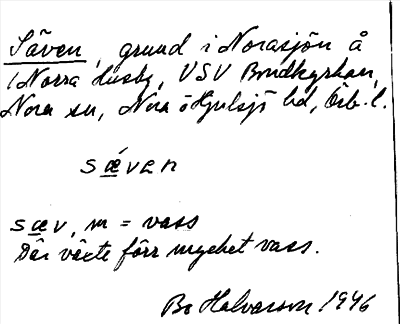 Säven, grund i Norasjön å
Norra Husby, VSV Bondkyrkan,
Nora sn, Nora o Hjulsjö hd, Örb. l.
sǽven
sæv, m = vass
Där växte förr mycket vass.
Bo Halvarson 1946